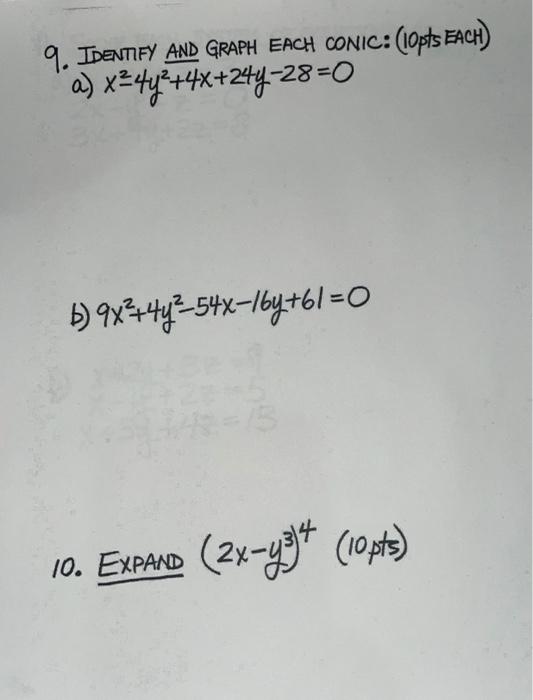 9. IDENTIFY AND GRAPH EACH CONIC: (10pts EACH)
a) x²-4y²+4x+24y-28=0
b) 9x²+4y²-54x-16y+61=0
10. EXPAND (2x-y³)⁴ (10pts)